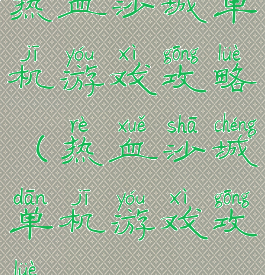 热血沙城单
jī yóu xì gōng lüè
机游戏攻略
rè xuě shā chéng
（热血沙城
dān jī yóu xì gōng
单机游戏攻
lüè